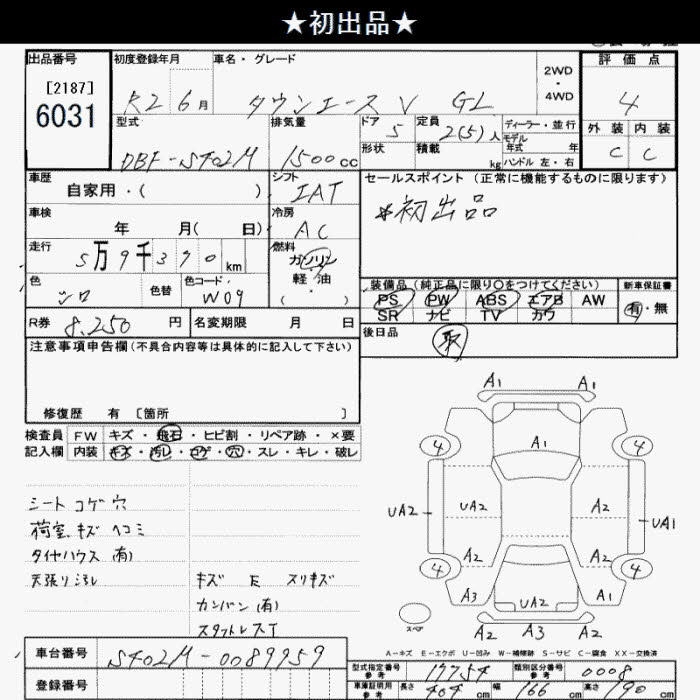 ★初出品★
出品番号 初度登録年月 車名・グレード 2WD・4WD 評価点
[2187]
6031
R2 6月 タウンエース V GL 4
型式 排気量 ドア 定員 ディーラー・並行 外装 内装
5 2(5)人 モデル年式 年
DBF-S402M 1500cc 形状 積載 kg ハンドル 左・右 C C
車歴 シフト セールスポイント (正常に機能するものに限ります)
自家用・( ) IAT
*初出品
車検 冷房
年 月( 日) AC
走行 燃料
5万9千370km ガソリン
軽油
( ・ )
色 色替 色コード 装備品(純正品に限り○をつけてください) 新車保証書
シロ W09 PS PW ABS エアB AW 有・無
SR ナビ TV カワ
R券 8,250円 名変期限 月 日 後日品
取
注意事項申告欄(不具合内容等は具体的に記入して下さい)
修復歴 有 [箇所 ]
検査員 FW キズ・飛石・ヒビ割・リペア跡・×要
記入欄 内装 キズ・汚レ・コゲ・穴・スレ・キレ・破レ
シート コゲ 穴
荷室 キズ ヘコミ
タイヤハウス (有)
天張りヨゴレ
キズ E スリキズ
カンバン(有)
スタットレスT
A1 A1
4 A1 4
UA2 UA2 A2 UA1
A2 A2
4 4
A3 UA2 A1
スペア A2 A3 A2
A-キズ E-エクボ U-凹み W-補修跡 S-サビ C-腐食 XX-交換済
車台番号 S402M-0089959
型式指定番号 参考 17754 類別区分番号 参考 0008
登録番号 車庫証明用 参考 長さ 404cm 幅 166cm 高さ 190cm